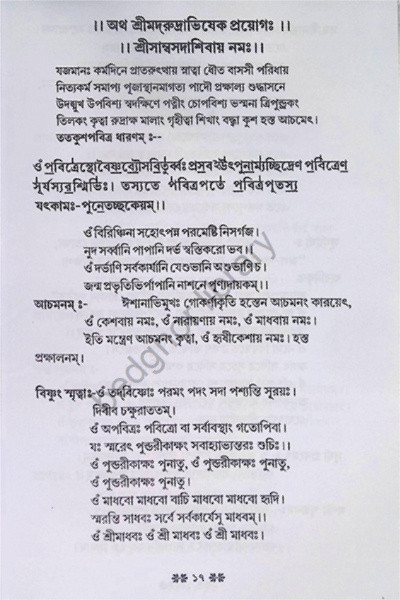 ।। অথ শ্ৰীমদ্ৰুদ্ৰাভিষেক প্ৰয়োগঃ ।।
।। শ্ৰীসাম্বসদাশিবায় নমঃ।।
যজমানঃ কৰ্মদিনে প্ৰাতৰুত্থায় স্নাত্বা ধৌত বাসসী পৰিধায়
নিত্যকৰ্ম সমাপ্য পূজাস্থানমাগত্য পাদৌ প্ৰক্ষাল্য শুদ্ধাসনে
উদঙ্মুখ উপবিশ্য স্বদক্ষিণে পত্নীং চোপবিশ্য ভস্মনা ত্ৰিপুণ্ড্ৰকং
তিলকং কৃত্বা ৰুদ্ৰাক্ষ মালাং গৃহীত্বা শিখাং বদ্ধা কুশ হস্ত আচমেৎ।
ততকুশপবিত্ৰ ধাৰণম্ ঃ--
ওঁ পবিত্ৰেস্থোবৈষ্ণব্যৌসবিতুৰ্ব্বঃপ্ৰসৱ উৎপুনাম্যচ্ছিদ্ৰেণ পৱিত্ৰেণ
সূৰ্যস্যৰশ্মিভিঃ। তস্যতে পবিত্ৰপতে পৱিত্ৰপূতস্য
যৎকামঃ-পুনেতচ্ছকেয়ম্।।
ওঁ বিৰিঞ্চিনা সহোৎপন্ন পৰমেষ্টি নিসৰ্গজ।
নুদ সৰ্ব্বানি পাপানি দৰ্ভ স্বস্তিকৰো ভব।।
ওঁ দৰ্ভাণি সৰ্বকাৰ্যানি যেশুভানি অশুভাণিচ।
জন্ম প্ৰভৃতিভিৰ্পাপানি নাশনে পুণ্যদায়কম্।।
আচমনম্ ঃ- ঈশানাভিমুখঃ গোকৰ্ণাকৃতি হস্তেন আচমনং কাৰয়েৎ,
ওঁ কেশবায় নমঃ, ওঁ নাৰায়ণায় নমঃ, ওঁ মাধবায় নমঃ।
ইতি মন্ত্ৰেণ আচমনং কৃত্বা, ওঁ হৃষীকেশায় নমঃ। হস্ত
প্ৰক্ষালনম্।
বিষ্ণুং স্মৃত্বাঃ-ওঁ তদ্‌বিষ্ণোঃ পৰমং পদং সদা পশ্যন্তি সূৰয়ঃ।
দিবীব চক্ষুৰাততম্।
ওঁ অপবিত্ৰঃ পবিত্ৰো বা সৰ্বাবস্থাং গতোপিবা।
যঃ স্মৰেৎ পুন্ডৰীকাক্ষং সবাহ্যাভ্যন্তৰঃ শুচিঃ।।
ওঁ পুন্ডৰীকাক্ষঃ পুনাতু, ওঁ পুন্ডৰীকাক্ষঃ পুনাতু,
ওঁ পুন্ডৰীকাক্ষঃ পুনাতু।
ওঁ মাধবো মাধবো বাচি মাধবো মাধবো হৃদি।
স্মৰন্তি সাধবঃ সৰ্বে সৰ্বকাৰ্যেসু মাধবম্।।
ওঁ শ্ৰীমাধবঃ ওঁ শ্ৰী মাধবঃ ওঁ শ্ৰী মাধবঃ।
১৭